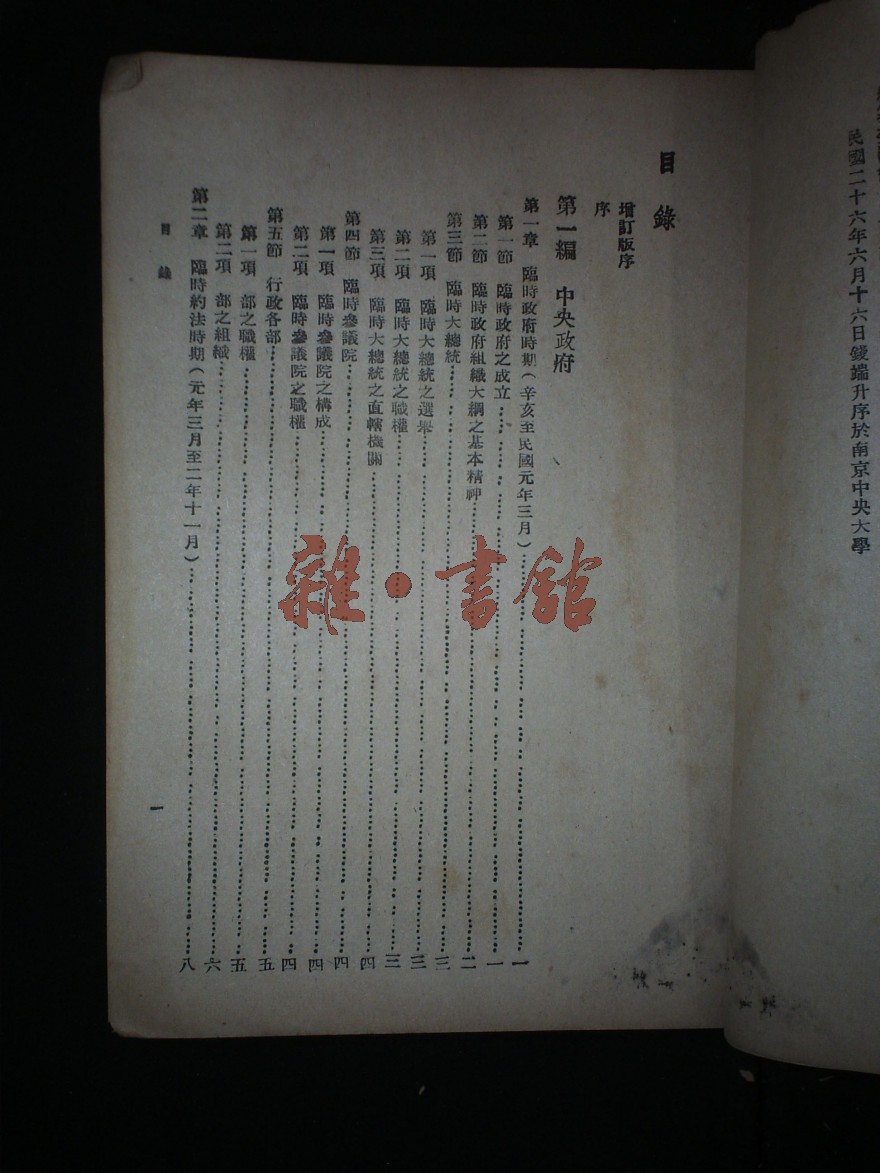 民國二十六年六月十六日錢端升序於南京中央大學
目錄
增訂版序
序
第一編 中央政府
第一章 臨時政府時期(辛亥至民國元年三月)……一
第一節 臨時政府之成立……一
第二節 臨時政府組織大綱之基本精神……二
第三節 臨時大總統……三
第一項 臨時大總統之選舉……三
第二項 臨時大總統之職權……三
第三項 臨時大總統之直轄機關……四
第四節 臨時參議院……四
第一項 臨時參議院之構成……四
第二項 臨時參議院之職權……四
第五節 行政各部……五
第一項 部之職權……五
第二項 部之組織……六
第二章 臨時約法時期(元年三月至二年十一月)……八
目錄
一
雜·書館